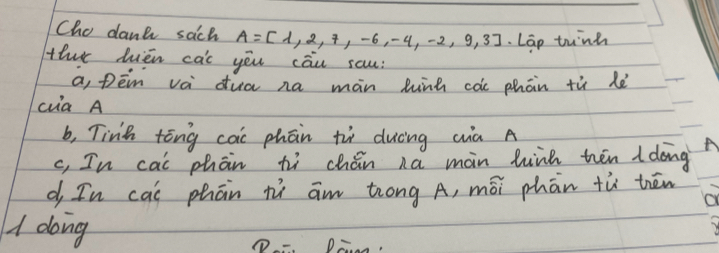 Cho danh sách A=[1,2,7,-6,-4,-2,9,3]. Lập trình
thực hiện các yêu cầu sau:
a, Đếm và đưa ra màn hình các phần tử lẻ
của A
b, Tính tổng các phần tử dương của A
c, In các phần tử chẵn ra màn hình trên 1 dòng
d, In các phần tử âm trong A, mỗi phần tử trên
1 dòng
làm: